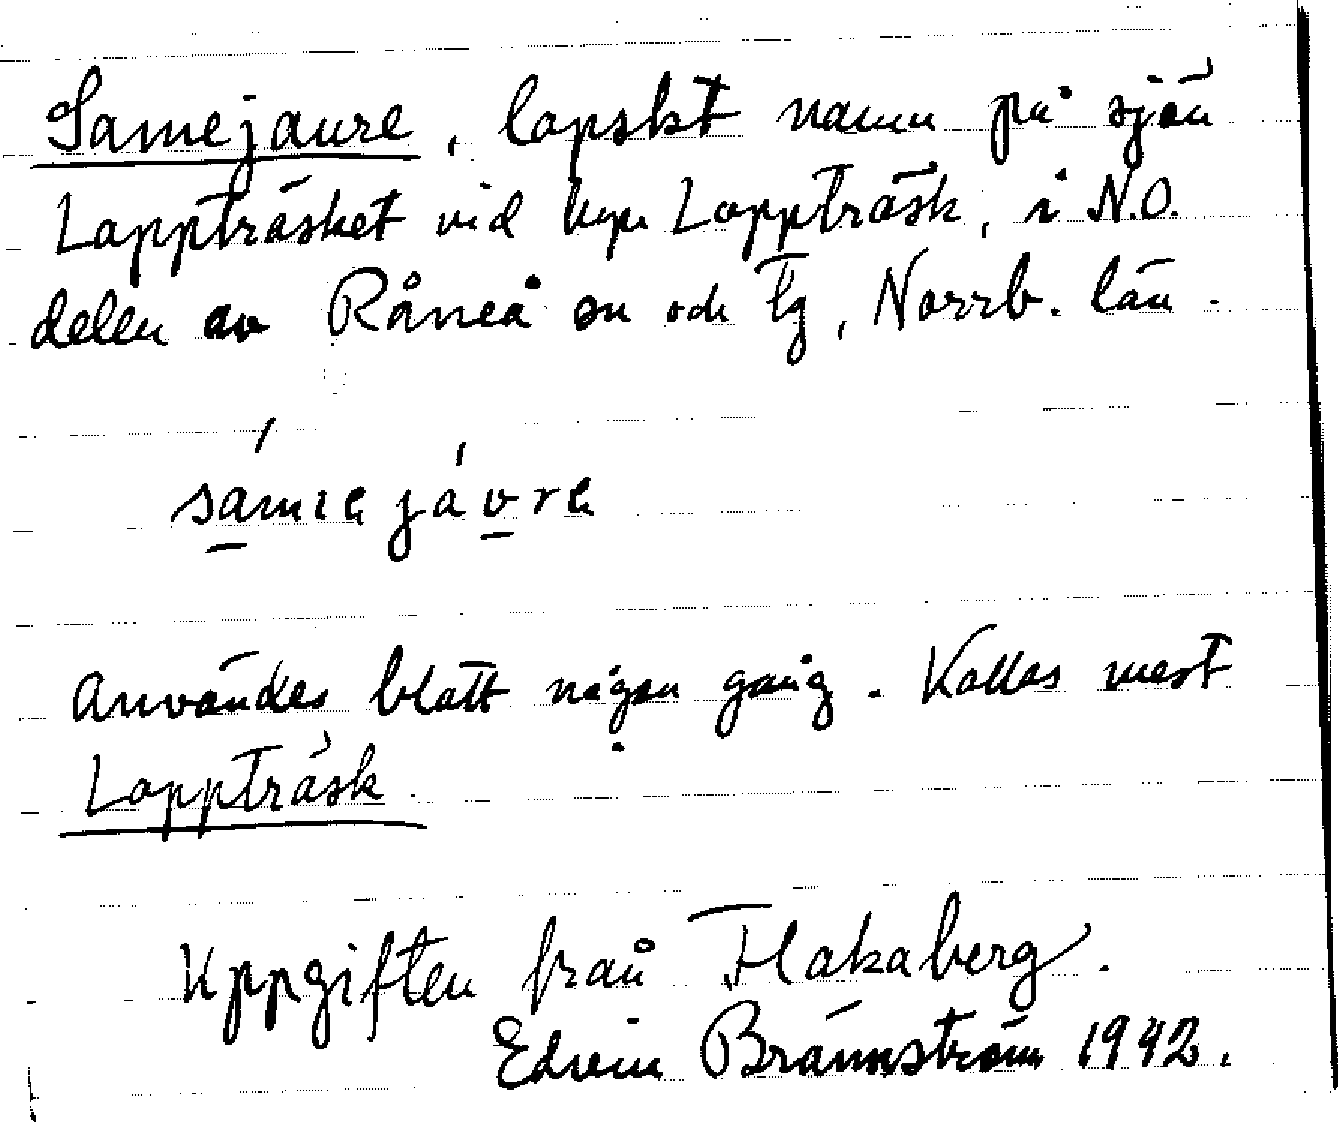 Samejaure, lapskt namn på sjön
Lappträsket vid byn Lappträsk, i N.O.
delen av Råneå sn och tg, Norrb. län.
sámιejávrɛ
Användes blott någon gång. Kallas mest
Lappträsk.
Uppgiften från Flakaberg.
Edvin Brännström 1942.